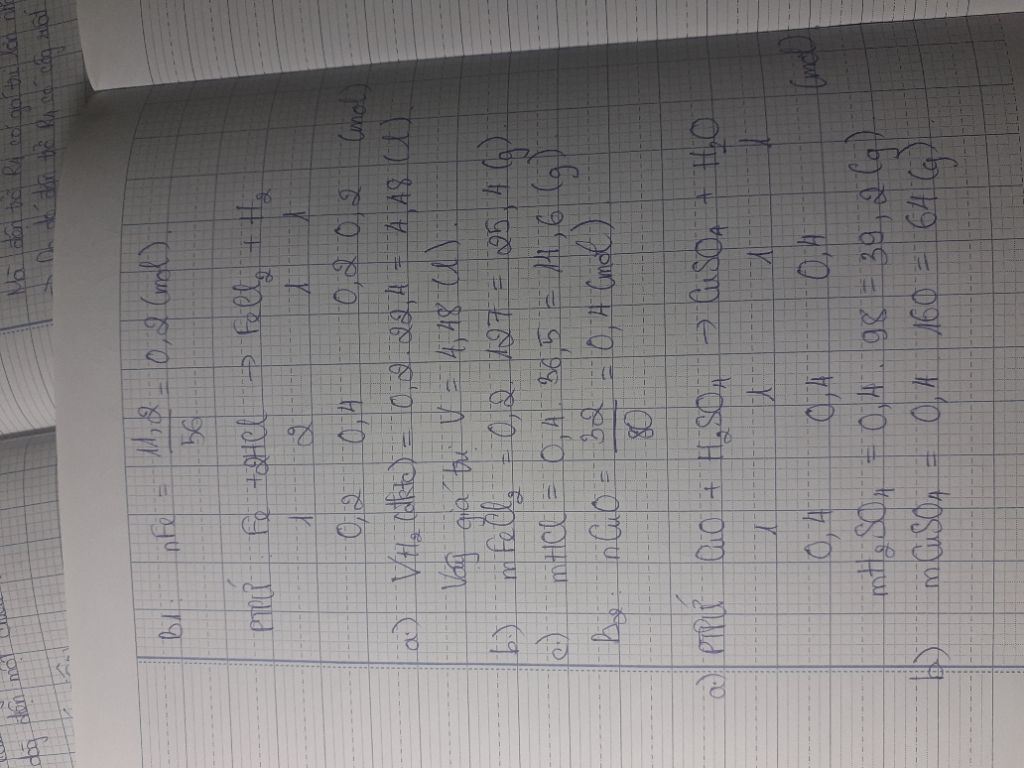 B1: nFe = 11,2 / 56 = 0,2 (mol).
PTHH: Fe + 2HCl → FeCl₂ + H₂
1 2 1 1
0,2 0,4 0,2 0,2 (mol)
a) VH₂ (đktc) = 0,2 . 22,4 = 4,48 (l)
Vậy giá trị V = 4,48 (l).
b) mFeCl₂ = 0,2 . 127 = 25,4 (g)
c) mHCl = 0,4 . 36,5 = 14,6 (g)
B2: nCuO = 32 / 80 = 0,4 (mol)
a) PTHH CuO + H₂SO₄ → CuSO₄ + H₂O
1 1 1 1
0,4 0,4 0,4 (mol)
mH₂SO₄ = 0,4 . 98 = 39,2 (g)
b) mCuSO₄ = 0,4 . 160 = 64 (g)